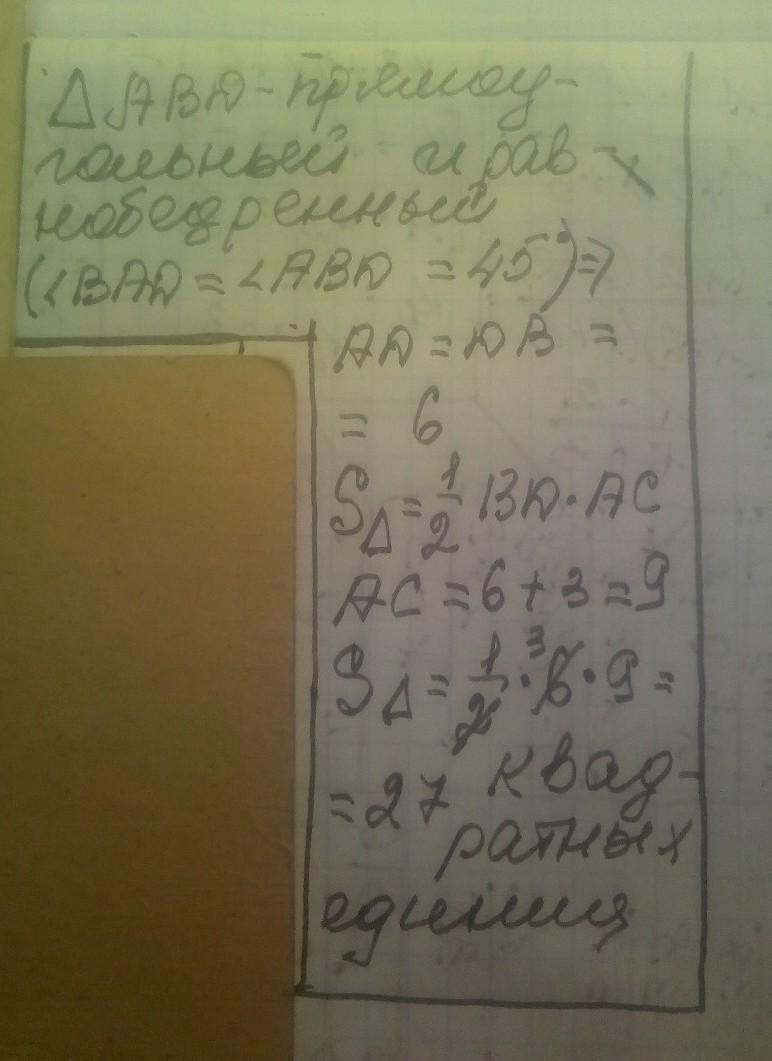 △ABD - прямоу-
гольный и рав-
нобедренный
(∠BAD = ∠ABD = 45°) ⇒
AD = DB =
= 6
S△ = 1/2 BD · AC
AC = 6 + 3 = 9
S△ = 1/2 · 6 3 · 9 =
= 27 квад-
ратных
единиц